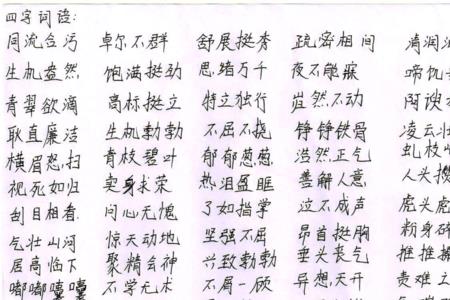 四字词语:
同流合污 卓尔不群 舒展挺秀 疏密相间 清润
生机盎然, 饱满挺劲 思绪万千 夜不能寐 啼饥
青翠欲滴 高标挺立 特立独行 岿然不动 阿谀
耿直廉洁 生机勃勃 不屈不挠 铮铮铁骨 凌云壮
横眉怒扫 青枝碧叶 郁郁葱葱, 浩然正气 虬枝
视死如归 卖身求荣 热泪盈眶 善解人意, 人头
刮目相看. 问心无愧 了如指掌 泣不成声 虎头虎
气壮山河 惊天动地 坚强不屈 昂首挺胸 粉身碎
居高临下 聚精会神 兴致勃勃 垂头丧气 推推搡
嘟嘟囔囔 不学无术 不屑一顾 异想天开 责难